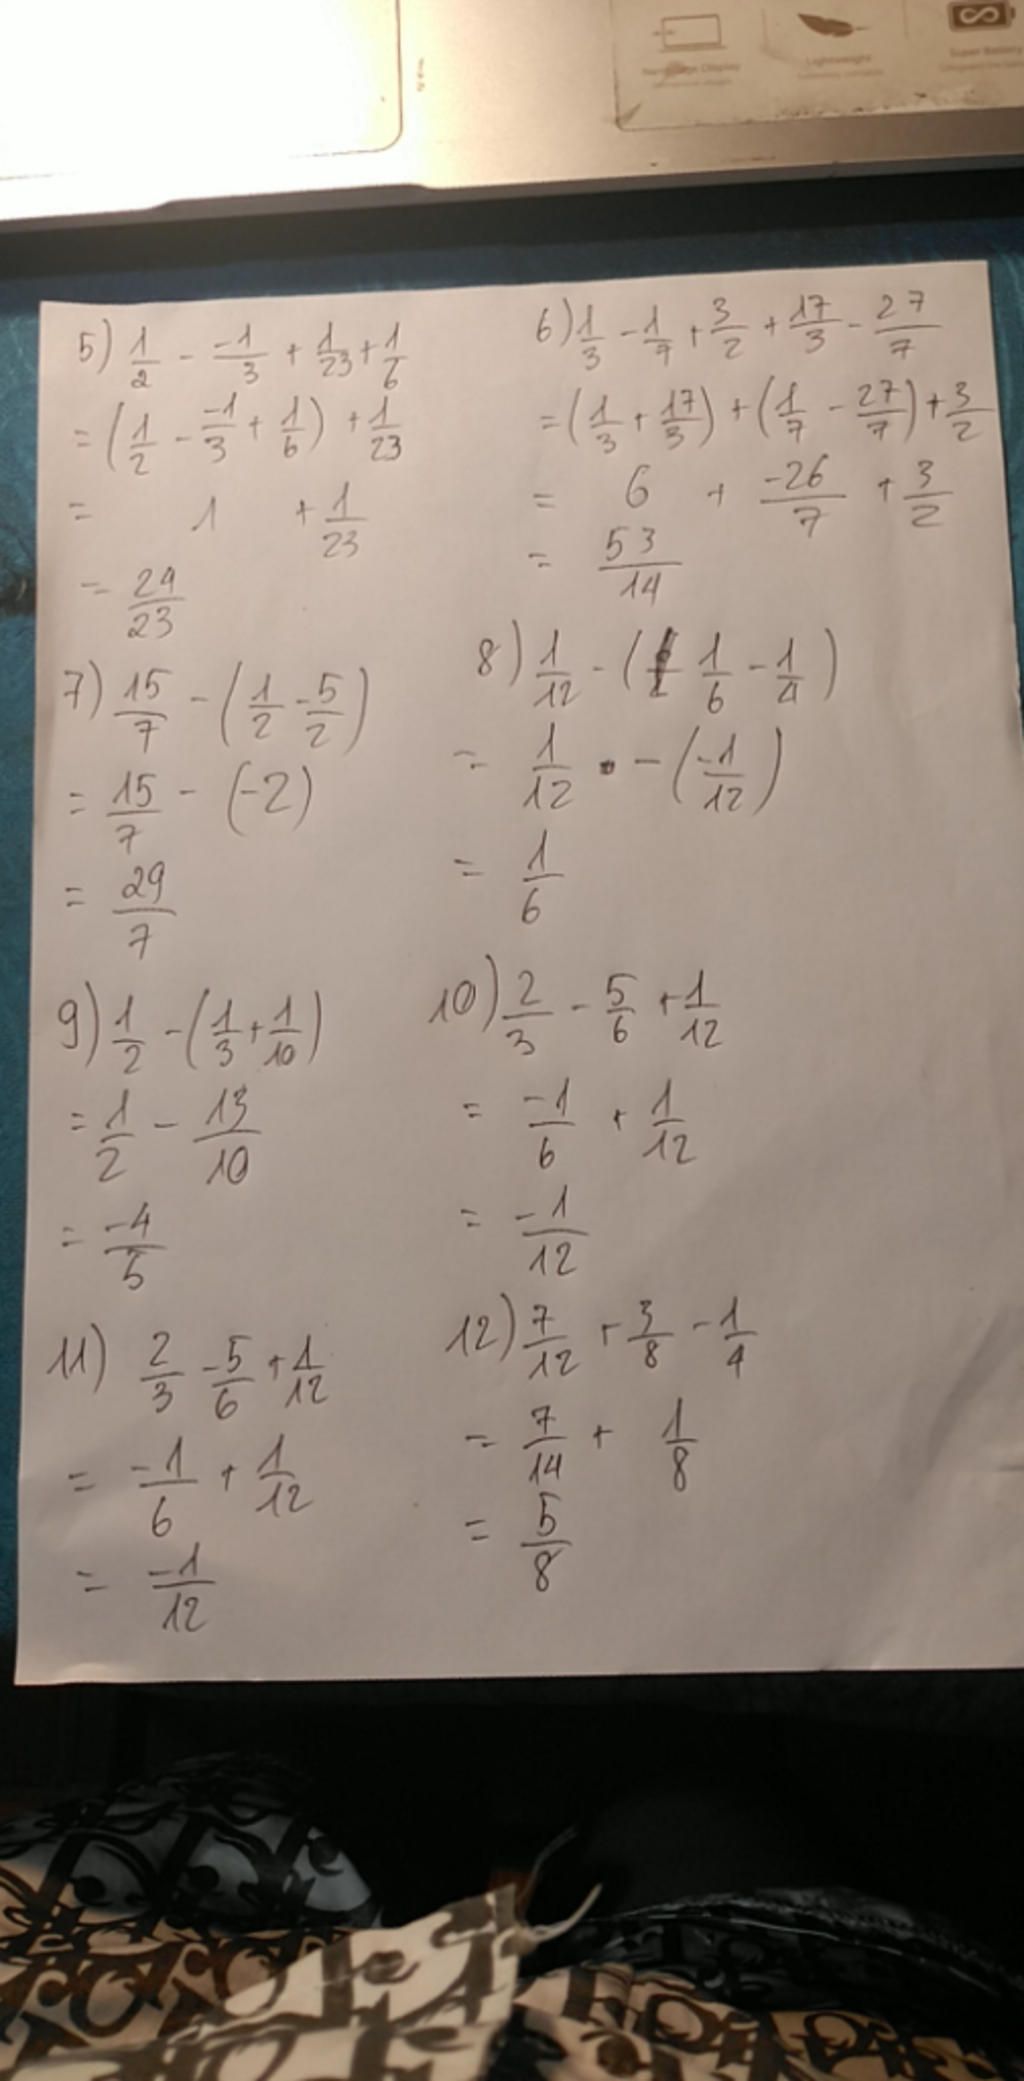 Lightweight
5) 1/2 - -1/3 + 1/23 + 1/6
= (1/2 - -1/3 + 1/6) + 1/23
= 1 + 1/23
= 24/23
6) 1/3 - 1/7 + 3/2 + 17/3 - 27/7
= (1/3 + 17/3) + (1/7 - 27/7) + 3/2
= 6 + -26/7 + 3/2
= 53/14
7) 15/7 - (1/2 - 5/2)
= 15/7 - (-2)
= 29/7
8) 1/12 - (1/6 - 1/4)
= 1/12 - (-1/12)
= 1/6
9) 1/2 - (1/3 + 1/10)
= 1/2 - 13/10
= -4/5
10) 2/3 - 5/6 + 1/12
= -1/6 + 1/12
= -1/12
11) 2/3 - 5/6 + 1/12
= -1/6 + 1/12
= -1/12
12) 7/12 + 3/8 - 1/4
= 7/14 + 1/8
= 5/8